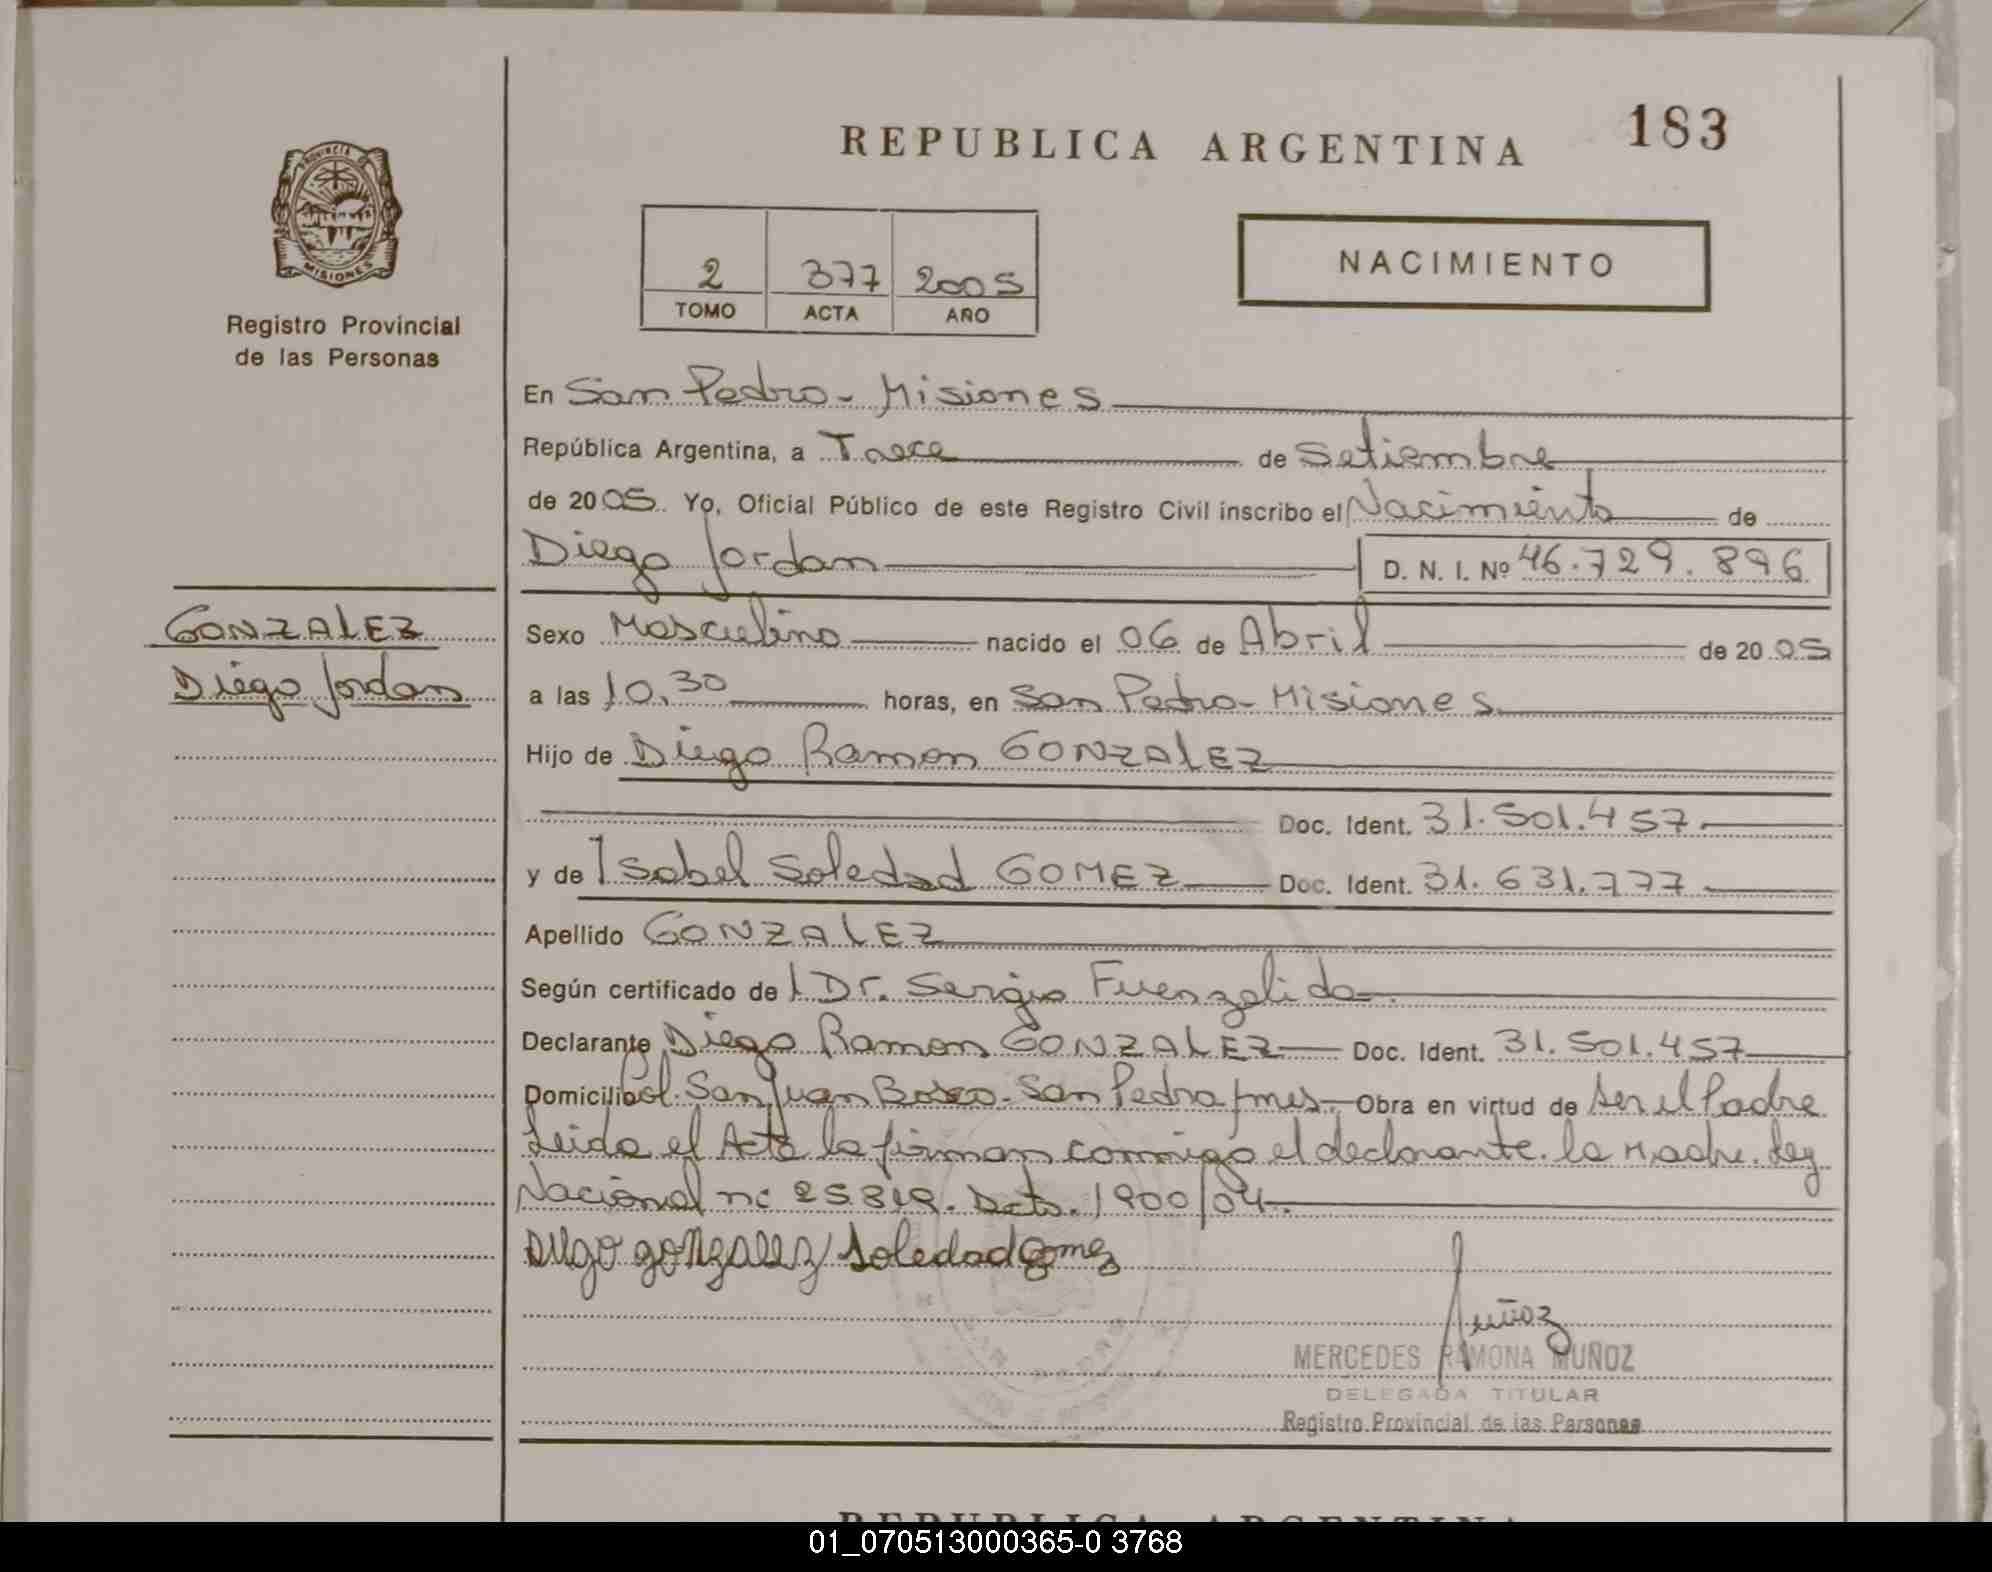 183
REPUBLICA ARGENTINA
PROVINCIA DE
MISIONES
Registro Provincial
de las Personas
2 377 2005
TOMO ACTA AÑO
NACIMIENTO
En San Pedro - Misiones
República Argentina, a Trece de Setiembre
de 2005. Yo, Oficial Público de este Registro Civil inscribo el Nacimiento de
Diego Jordan D. N. I. Nº 46.729.896
GONZALEZ
Diego Jordan
Sexo Masculino nacido el 06 de Abril de 2005
a las 10,30 horas, en San Pedro - Misiones
Hijo de Diego Ramon GONZALEZ
Doc. Ident. 31.501.457.
y de Isabel Soledad GOMEZ Doc. Ident. 31.631.777
Apellido GONZALEZ
Según certificado de l Dr. Sergio Fuenzalida.
Declarante Diego Ramon GONZALEZ Doc. Ident. 31.501.457
Domicilio Col. San Juan Bosco - San Pedro Mnes. Obra en virtud de ser el Padre
Leida el Acta la firman conmigo el declarante. la Madre. Ley
Nacional nº 25.819. Dcto. 1900/04.
Diego gonzalez Soledad Gomez
Muñoz
MERCEDES RAMONA MUÑOZ
DELEGADA TITULAR
Registro Provincial de las Personas
REPUBLICA ARGENTINA
01_070513000365-0 3768